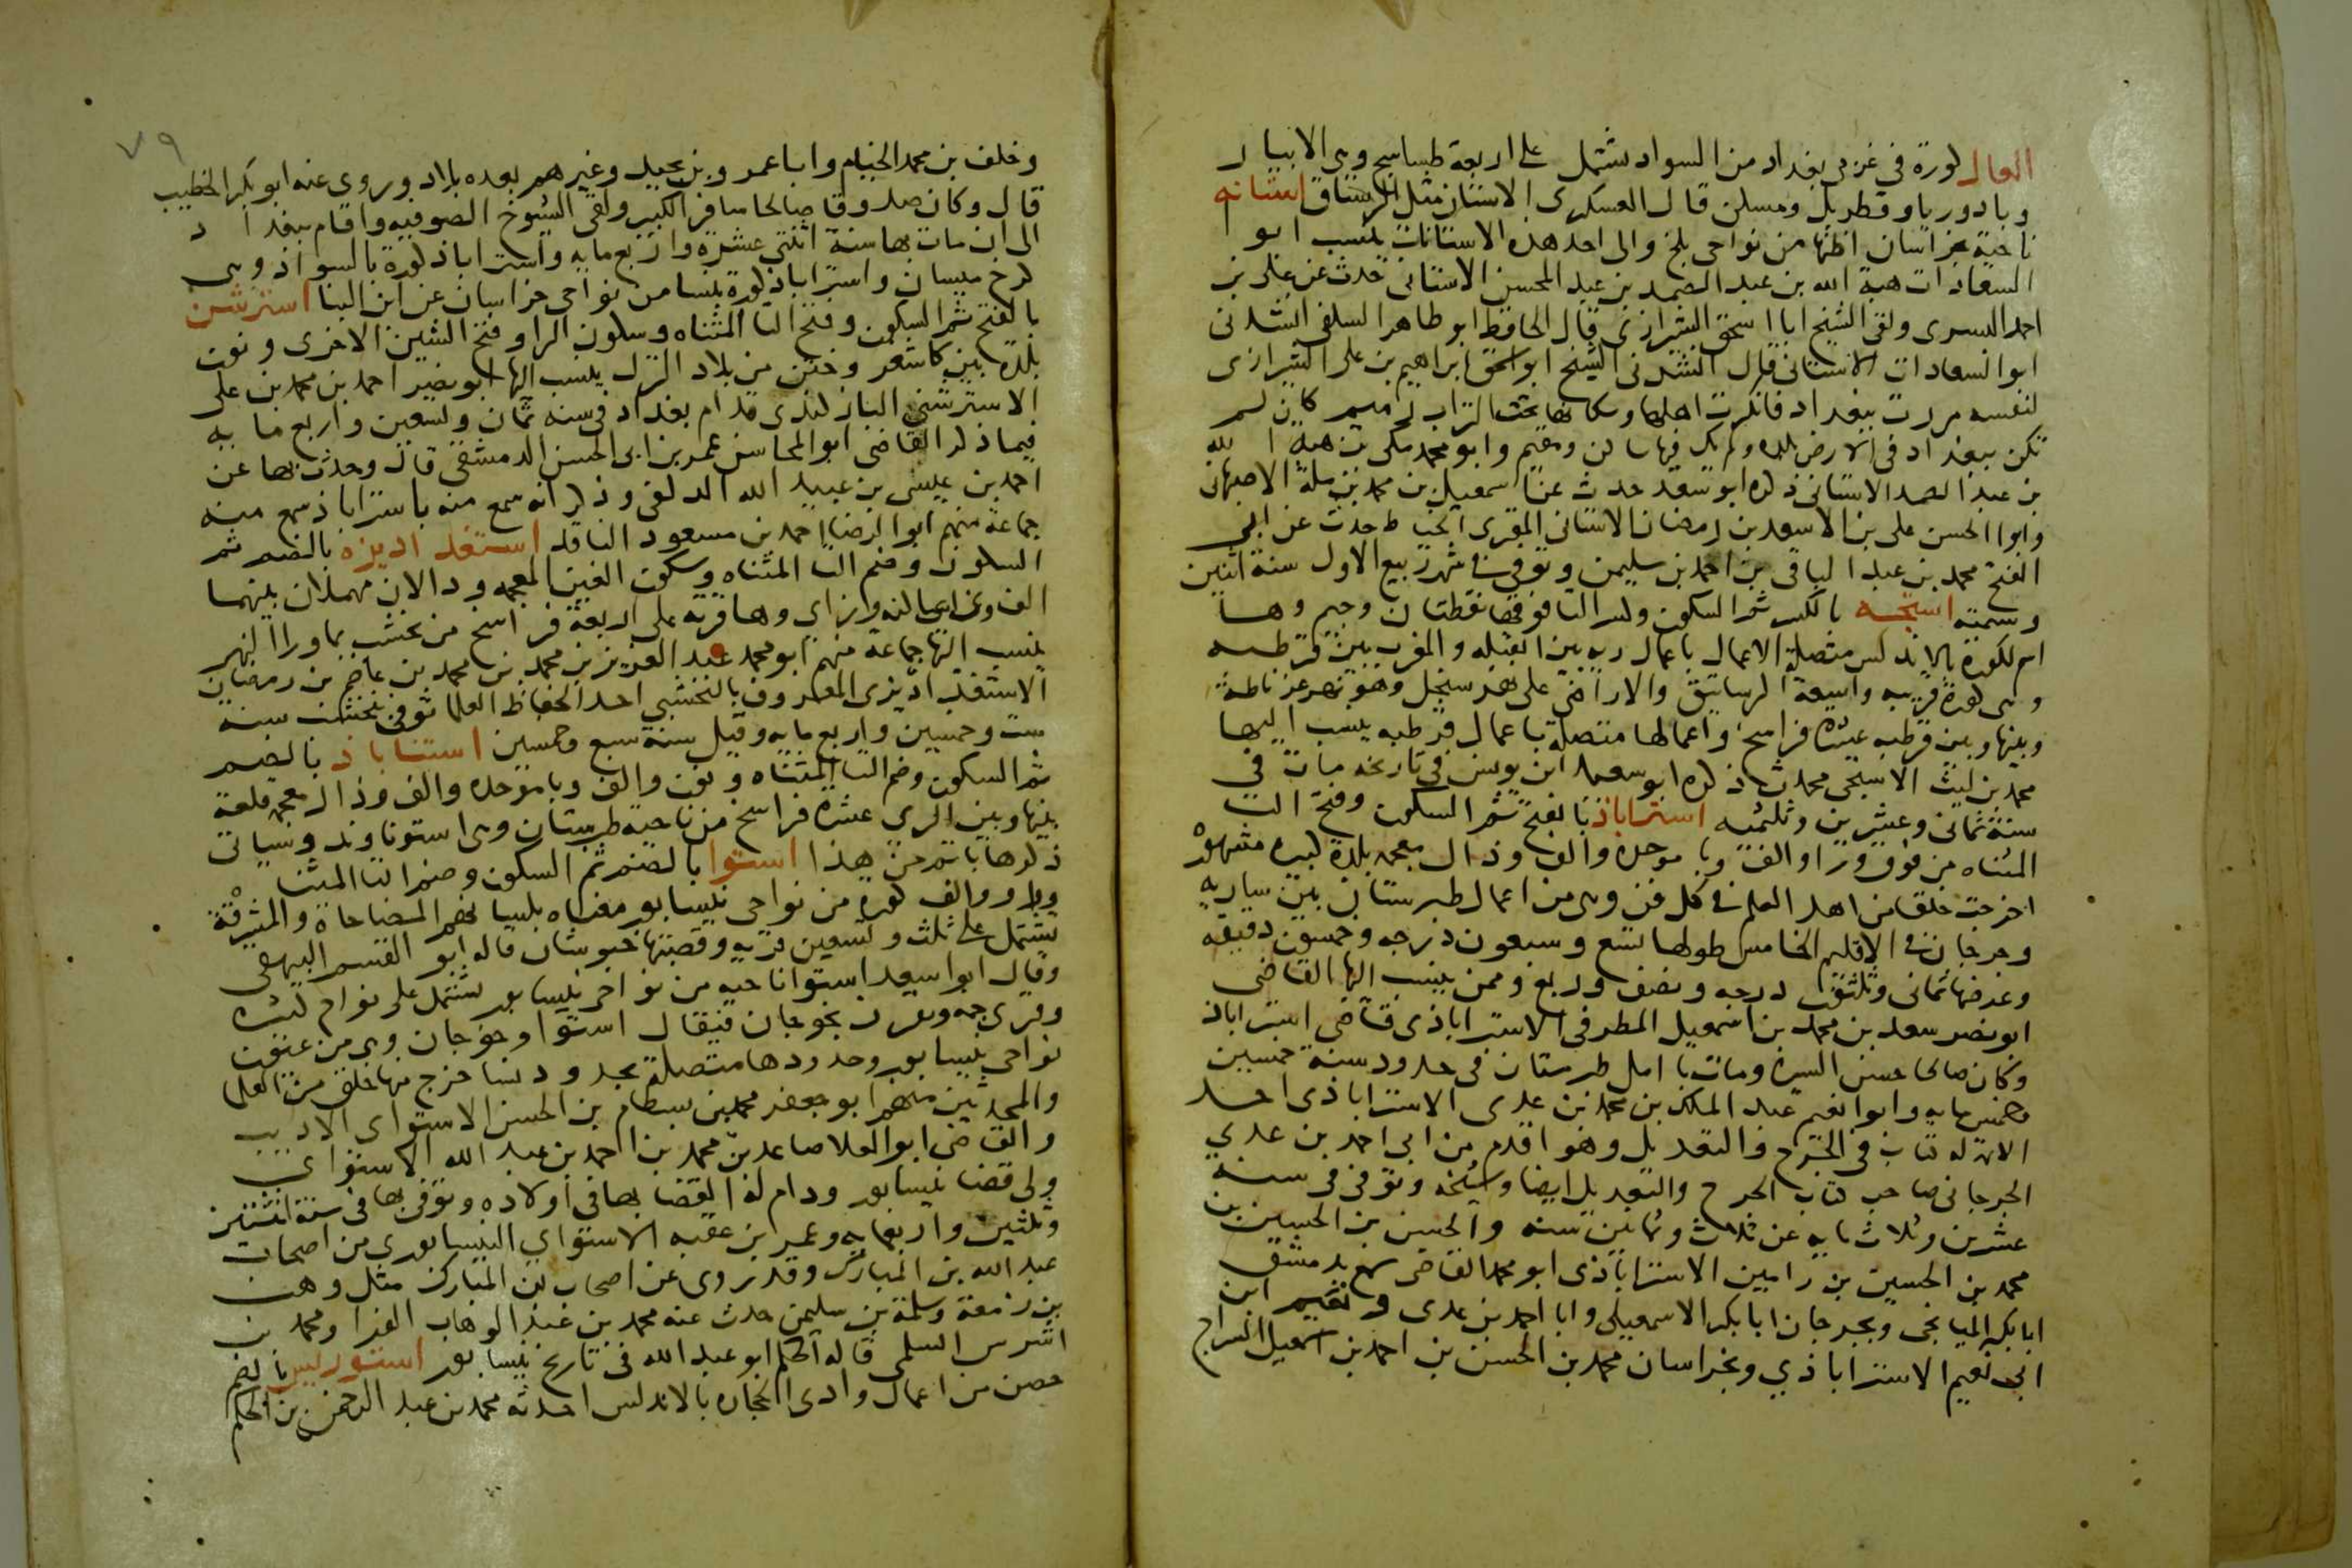 العال كورة في غربي بغداد من السواد يشتمل على اربعة طساسيج وهي الانبار
وبادوريا وقطربل ومسكن قال العسكري الاستان مثل الرستاق استانه
ناحية بخراسان اظنها من نواحي بلخ والى احد هذه الاستانات ينسب ابو
السعادات هبة الله بن عبد الصمد بن عبد المحسن الاستاني حدث عن علي بن
احمد البسري ولقي الشيخ ابا اسحق الشيرازي قال الحافظ ابو طاهر السلفي انشدني
ابو السعادات الاستاني قال انشدني الشيخ ابو اسحق ابراهيم بن علي الشيرازي
لنفسه مررت ببغداد فانكرت اهلها وسكانها تحت التراب رميم كان لم
تكن بغداد في الارض بلدة ولم يك فيها ساكن ومقيم وابو محمد مكي بن هبة الله
بن عبد الصمد الاستاني ذكره ابو سعد حدث عن اسمعيل بن محمد بن ملة الاصبهاني
وابو الحسن علي بن الاسعد بن رمضان الاستاني المقري الخياط حدث عن ابي
الفتح محمد بن عبد الباقي بن احمد بن سليمن وتوفي في شهر ربيع الاول سنة اثنين
وستمية استجه بالكسر ثم السكون وكسر التا فوقها نقطتان وجيم وها
اسم لكورة بالاندلس متصلة الاعمال باعمال ريه بين القبله والمغرب بين قرطبه
وهي كورة قريبه واسعة الرساتيق والاراضي على نهر سنجل وهو نهر غرناطة
وبينها وبين قرطبه عشرة فراسخ واعمالها متصلة باعمال قرطبه ينسب اليها
محمد بن ليث الاستجي محدث ذكره ابو سعيد ابن يونس في تاريخه مات في
سنة ثماني وعشرين وثلثميه استراباذ بالفتح ثم السكون وفتح التا
المثناه من فوق ورا والف وبا موحدة والف وذال معجمه بلدة كبيره مشهورة
اخرجت خلقا من اهل العلم في كل فن وهي من اعمال طبرستان بين ساريه
وجرجان في الاقليم الخامس طولها تسع وسبعون درجه وخمسون دقيقه
وعرضها ثماني وثلثون درجه ونصف وربع وممن ينسب اليها القاضي
ابو نصر سعد بن محمد بن اسمعيل المطرفي الاستراباذي قاضي استراباذ
وكان صالحا حسن السيرة ومات بامل طبرستان في حدود سنة خمسين
وخمس مايه وابو نعيم عبد الملك بن محمد بن عدي الاستراباذي احد
الايمه له كتاب في الجرح والتعديل وهو اقدم من ابي احمد بن عدي
الجرجاني صاحب كتاب الجرح والتعديل ايضا وشيخه وتوفي في سنه
عشرين وثلاث مايه عن ثلاث وثمانين سنه والحسين بن الحسين بن
محمد بن الحسين بن رامين الاستراباذي ابو محمد القاضي سمع بدمشق
ابا بكر الميانجي وبجرجان ابا بكر الاسمعيلي وابا احمد بن عدي ونعيم ابن
ابي نعيم الاستراباذي وبخراسان محمد بن الحسن بن احمد بن اسمعيل السراج
٧٩
وخلف بن محمد الخيام وابا عمرو بن نجيد وغيرهم بعده بلاد وروى عنه ابو بكر الخطيب
قال وكان صدوقا صالحا سافر الكثير ولقي الشيوخ الصوفيه واقام ببغداد
الى ان مات بها سنة اثنتي عشرة واربع مايه واستراباذ كورة بالسواد وهي
كرخ ميسان واستراباذ كورة بنسا من نواحي خراسان عن ابن البنا استرشن
بالفتح ثم السكون وفتح التا المثناه وسكون الرا وفتح الشين الاخرى ونون
بلدة بين كاشغر وختن من بلاد الترك ينسب اليها ابو نصر احمد بن محمد بن علي
الاسترشني البازكندي قدم بغداد في سنه ثمان وتسعين واربع مايه
فيما ذكر القاضي ابو المحاسن عمر بن ابي الحسن الدمشقي قال وحدث بها عن
احمد بن عيسى بن عبيد الله الدلفي وذكر انه سمع منه باستراباذ سمع منه
جماعة منهم ابو الرضا احمد بن مسعود الناقد استغداديزه بالضم ثم
السكون وضم التا المثناه وسكون الغين المعجمه ودالان مهملان بينهما
الف وزاي وها قريه على اربعة فراسخ من نخشب بماورا النهر
ينسب اليها جماعة منهم ابو محمد عبد العزيز بن محمد بن محمد بن عاصم بن رمضان
الاستغداديزي المعروف بالنخشبي احد الحفاظ العلما توفي بنخشب سنه
ست وخمسين واربع مايه وقيل سنة سبع وخمسين استناباذ بالضم
ثم السكون وضم التا المثناه ونون والف وبا موحده والف وذال معجمه قلعة
بينها وبين الري عشرة فراسخ من ناحية طبرستان وهي استوناوند وسياتي
ذكرها باتم من هذا استوا بالضم ثم السكون وضم التا المثنا
وواو والف كورة من نواحي نيسابور معناه بلسانهم المضحاة والمشرقة
يشتمل على ثلث وتسعين قريه وقصبتها خبوشان قاله ابو القسم البيهقي
وقال ابو سعد استوا ناحيه من نواحي نيسابور تشتمل على نواحي كثيره
وقرى جمه وتعرف بخوجان فيقال استوا وخوجان وهي من عيون
نواحي نيسابور وحدودها متصلة بحدود نسا خرج منها خلق من العلما
والمحدثين منهم ابو جعفر محمد بن بسطام بن الحسن الاستواي الاديب
والقاضي ابو العلا صاعد بن محمد بن احمد بن عبد الله الاستواي
ولي قضا نيسابور ودام له القضا بها في اولاده وتوفي بها في سنة اثنتين
وثلثين واربعمايه وعمير بن عقبه الاستواي النيسابوري من اصحاب
عبد الله بن المبارك وقد روى عن اصحاب ابن المبارك مثل وهب
بن زمعة وسلمة بن سليمن حدث عنه محمد بن عبد الوهاب الفرا ومحمد بن
اشرس السلمي قاله الحكم ابو عبد الله في تاريخ نيسابور استوريس بالضم
حصن من اعمال وادى الحجاره بالاندلس احدثه محمد بن عبد الرحمن بن الحكم